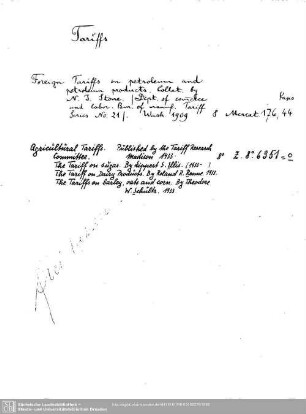 Tariffs
Foreign Tariffs on petroleum and
petroleum products. Collect. by
N. I. Stone. (Dept. of commerce
and labor. Bur. of manuf. Tariff
Series No. 21). Wash 1909 8 Mercat 176, 44
Agricultural Tariffs. Published by the Tariff Research
Committee. Madison 1933. 8° Z. 8° 6351
The Tariff on sugar. By Lippert S. Ellis. (1933- )
The Tariff on Dairy Products. By Roland R. Renne 1933.
The Tariffs on barley, oats and corn. By Theodore
W. Schultz. 1933